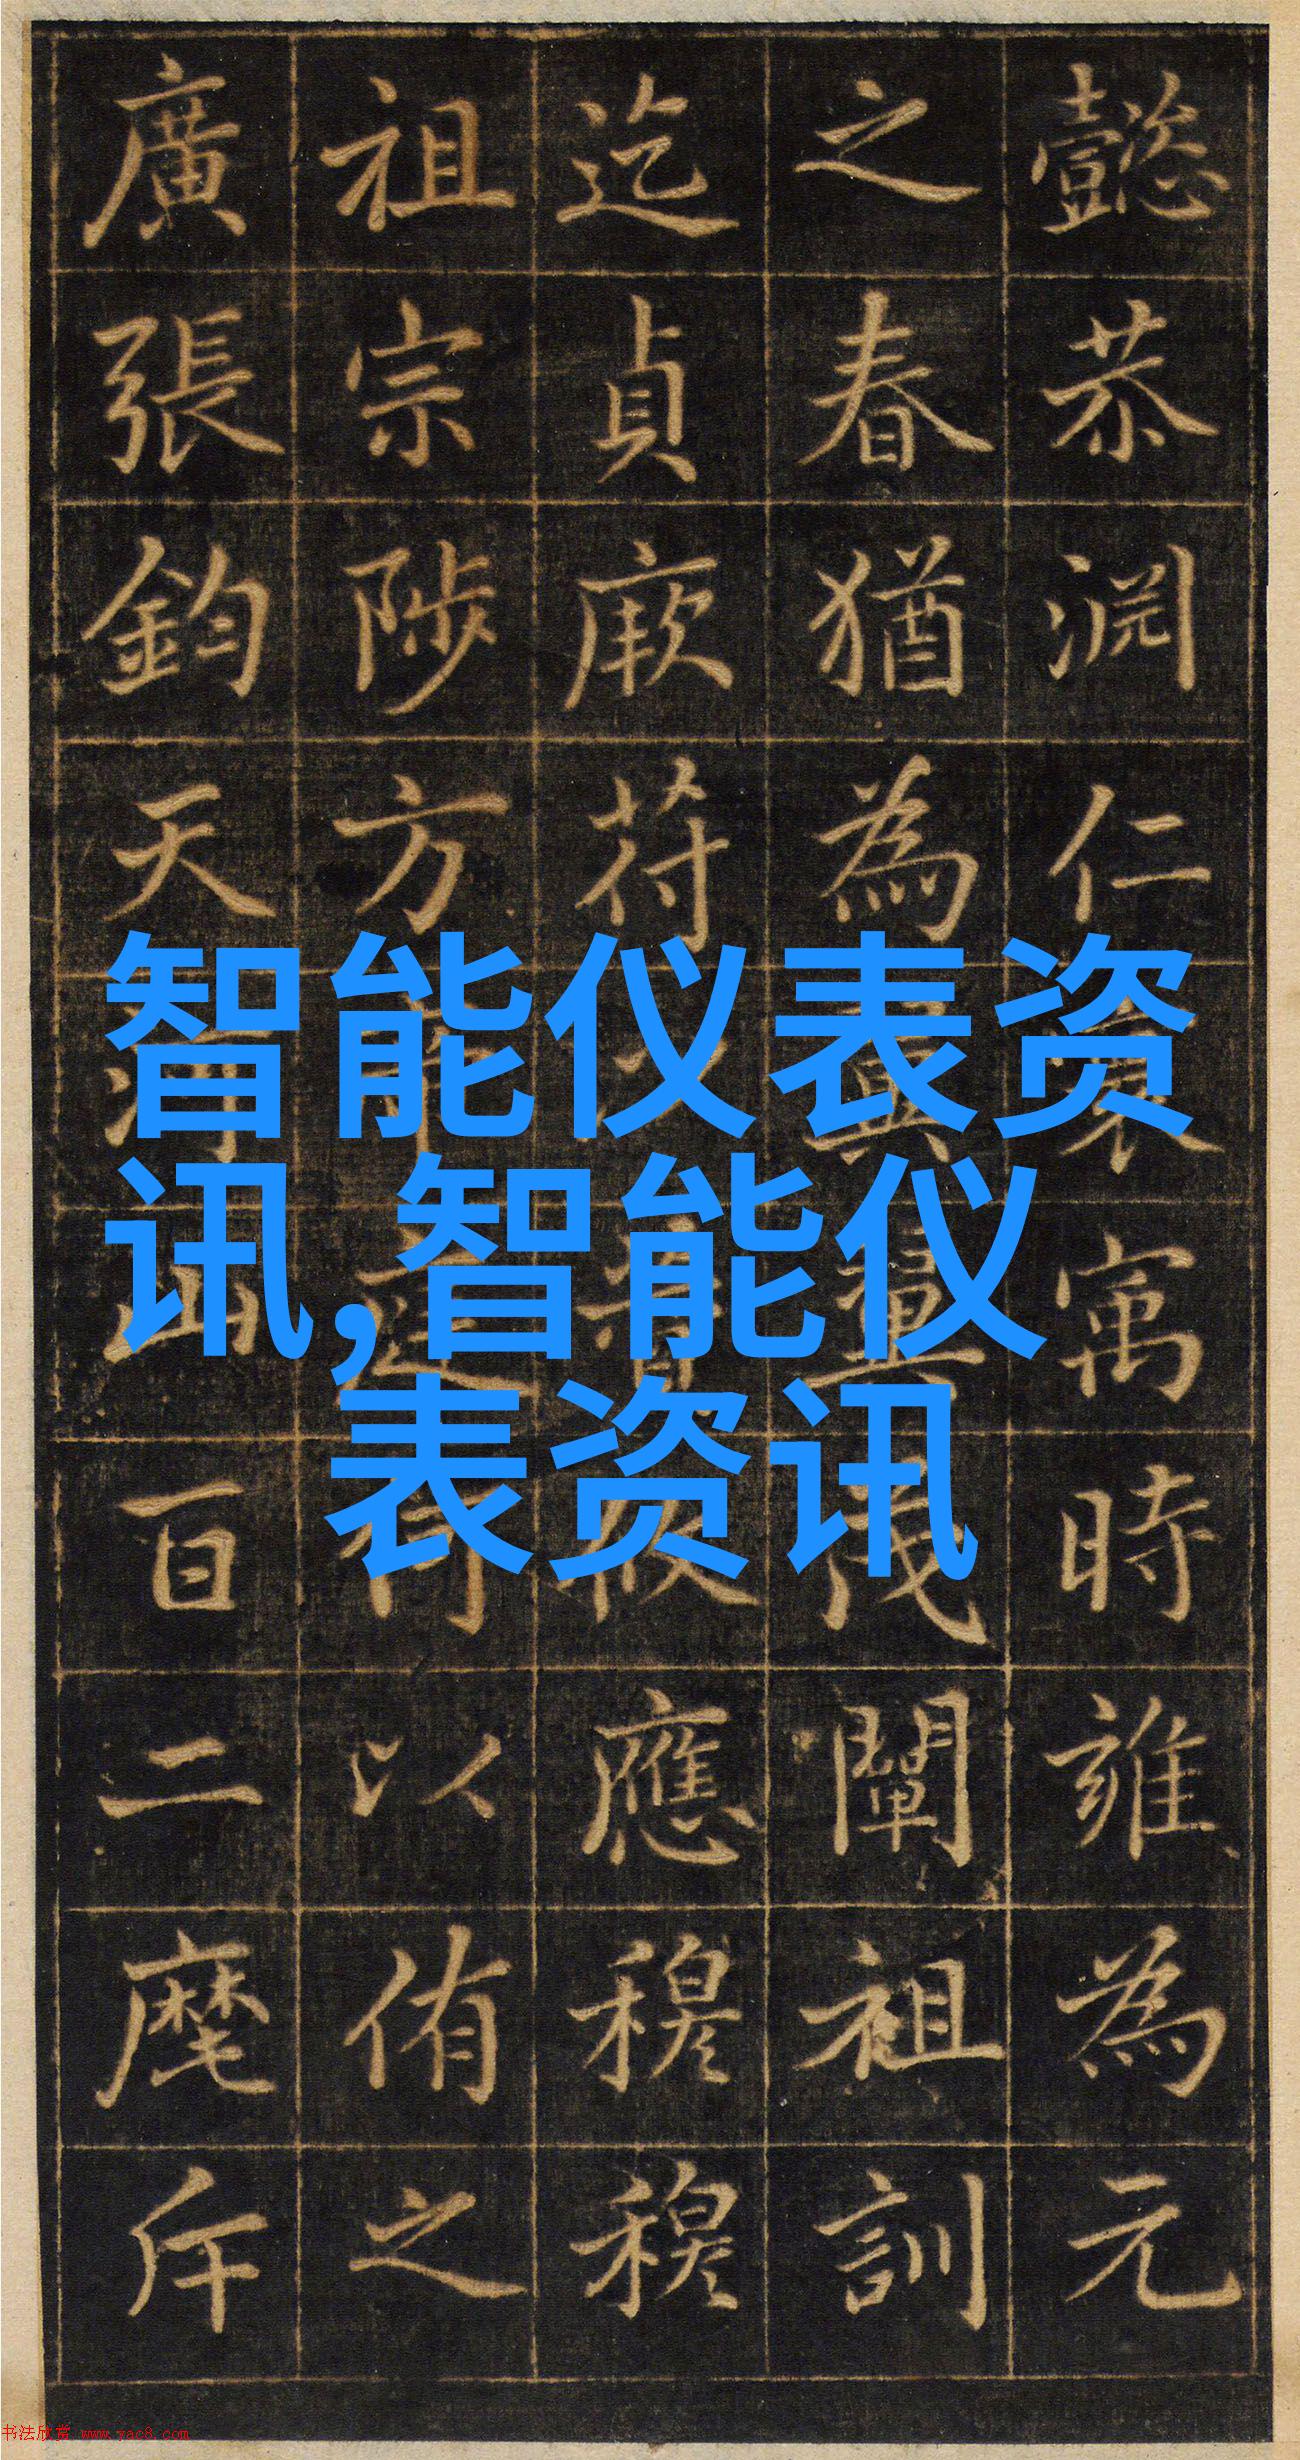 智能仪表资
讯,智能仪
表资讯
懿恭淵仁寰寓時雍為元
之春猶為闡祖訓
迄貞厥苻應穆穆
祖宗陟方以侑之
廣張鈞天百二麾斥
书法欣赏 www.yac8.com